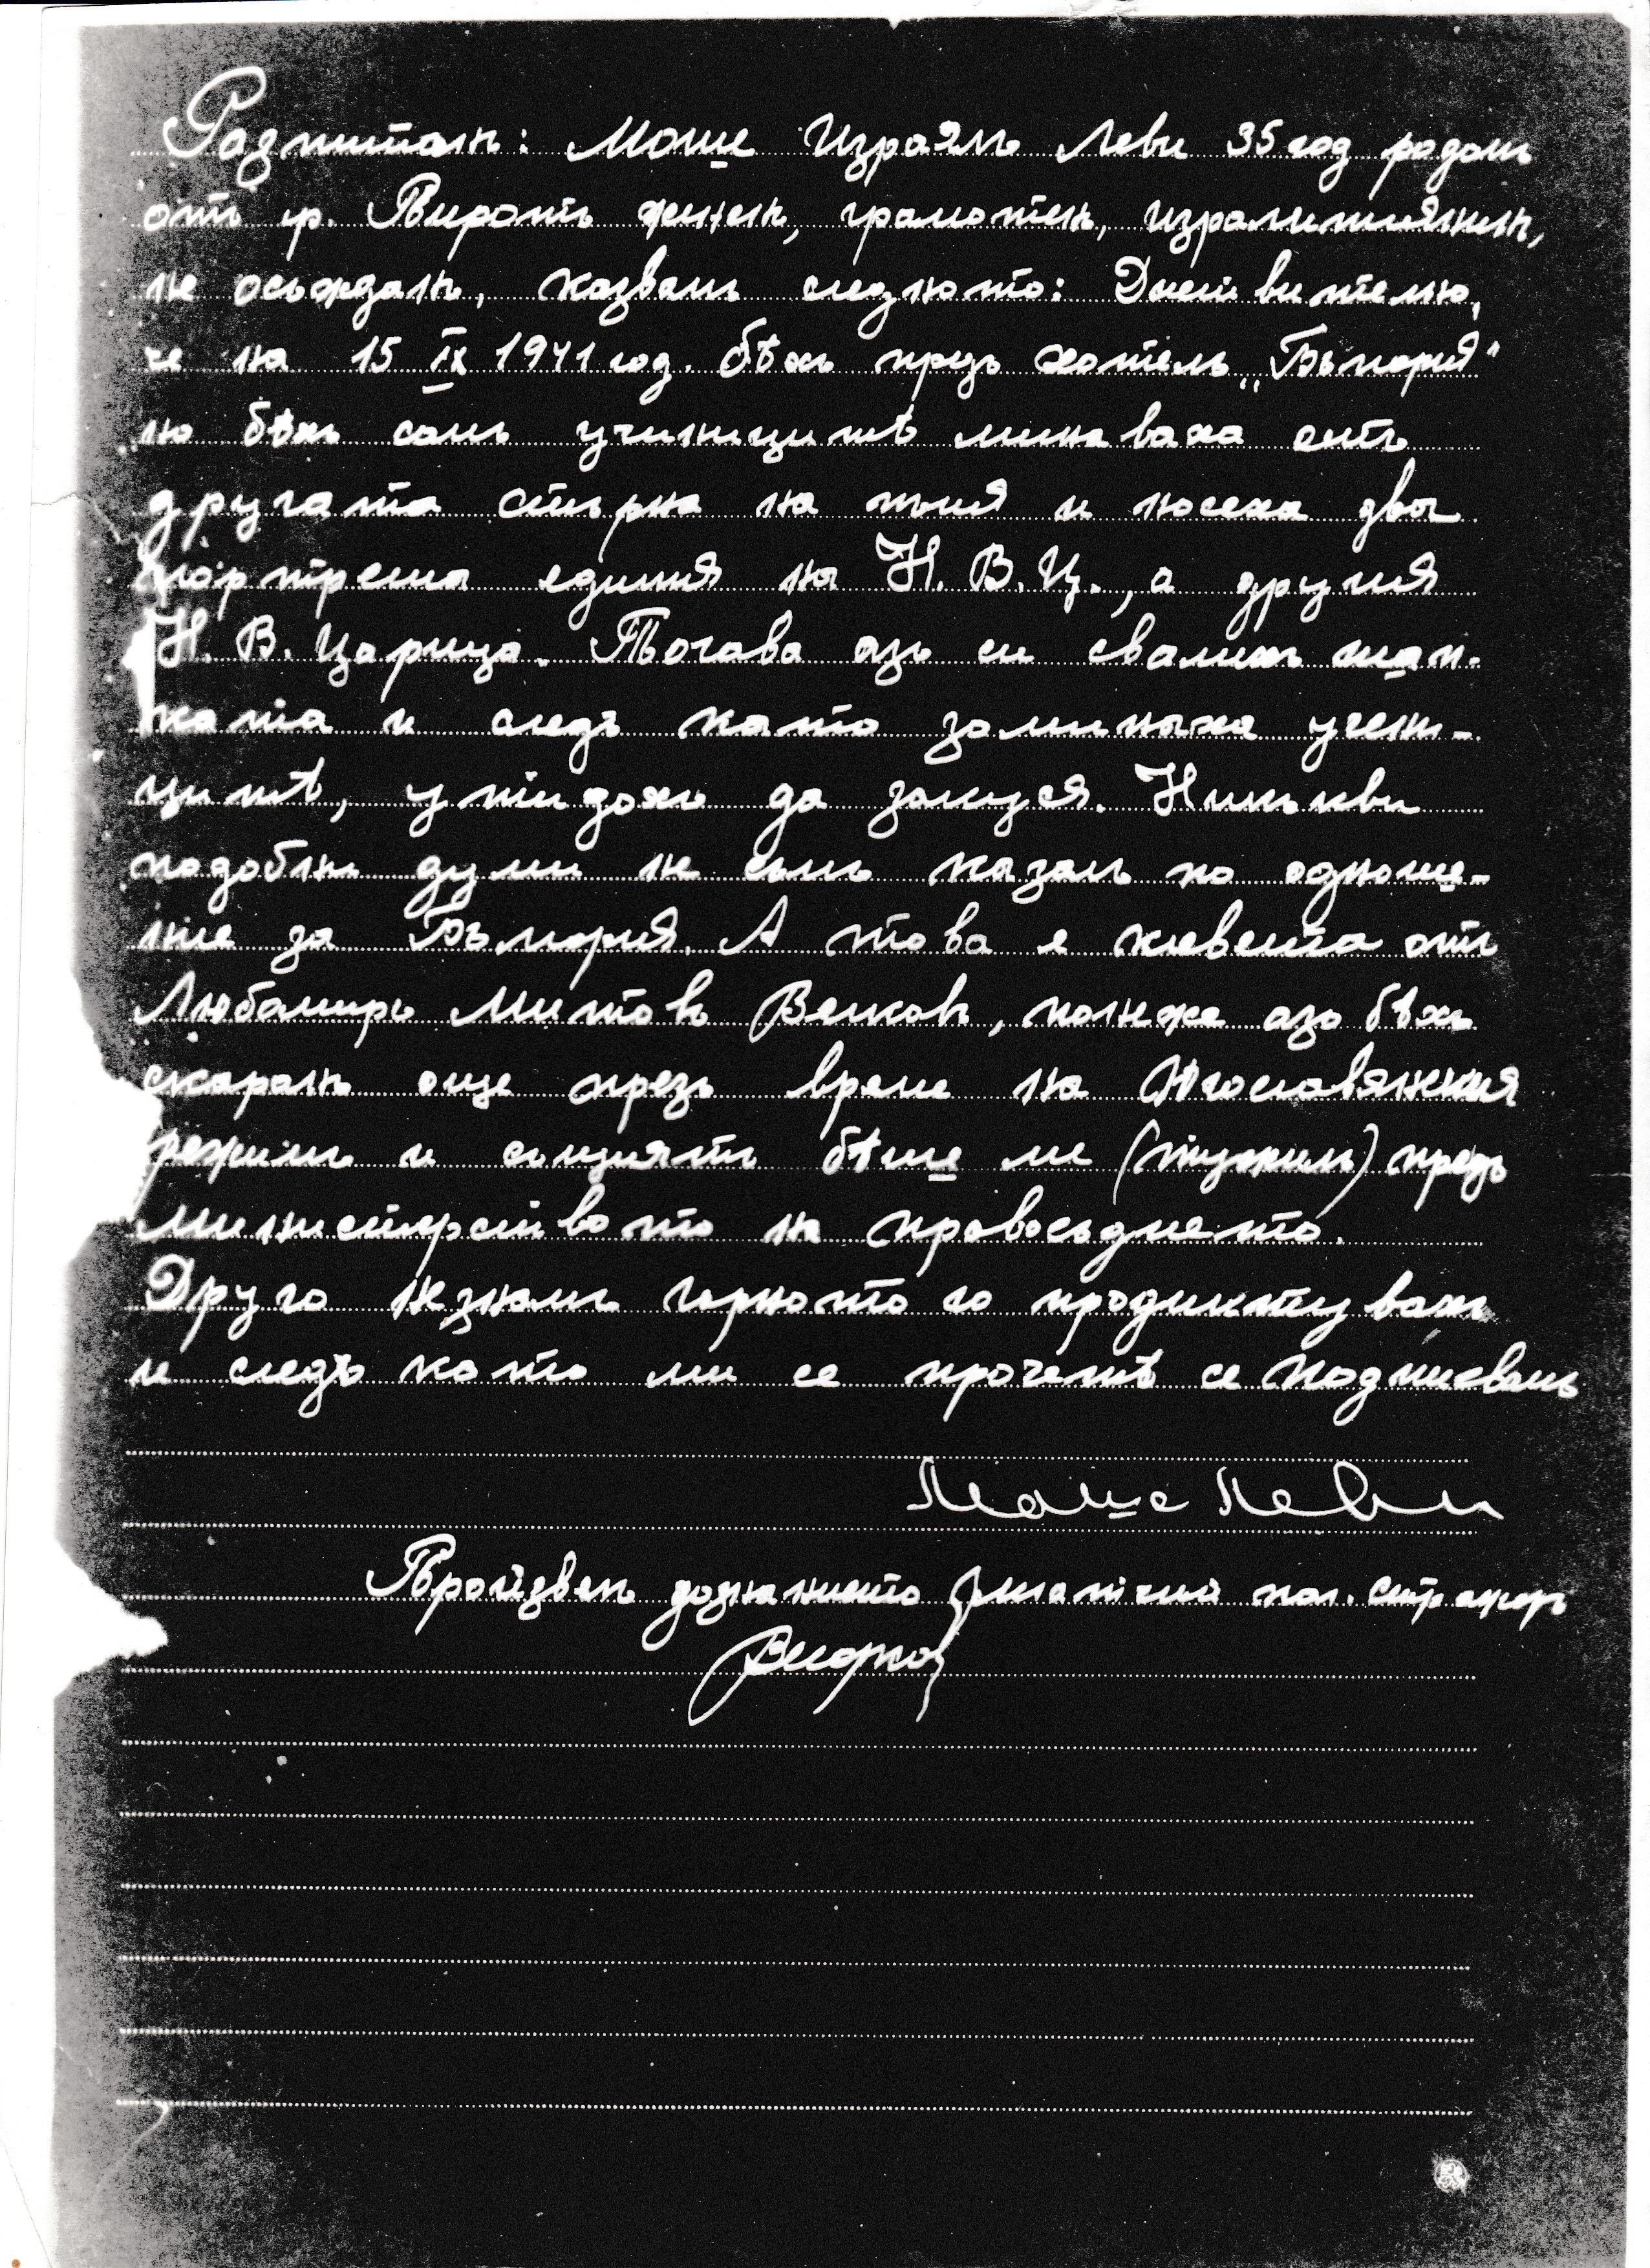 Разпитанъ: Моше Израялъ Леви 35 год родом
отъ гр. Пиротъ жененъ, грамотен, израилтиянин,
не осъжданъ, казвамъ следното: Действително,
че на 15 IX 1941 год. бѣхъ предъ хотелъ „България"
но бѣхъ самъ ученицитѣ минаваха отъ
другата стърна на тния и носеха два
портрета единия на Н. В. Ц., а другия
Н. В. Царица. Тогава азъ си свалихъ шап-
ката и следъ като заминаха учени-
цитѣ, утидохъ да закуся. Никакви
подобни думи не съмъ казалъ по одноше-
ние за България. А това е клевета отъ
Любомиръ Митовъ Велковъ, понеже азъ бѣхъ
скаранъ още презъ време на Югославянския
режимъ и същиятъ бѣше ме (тужил) предъ
министерството на правосъдието.
Друго незнамъ горното го продиктувахъ
и следъ като ми се прочетѣ се подписвамъ
Моше Леви
Произвелъ дознанието пол. стражаръ